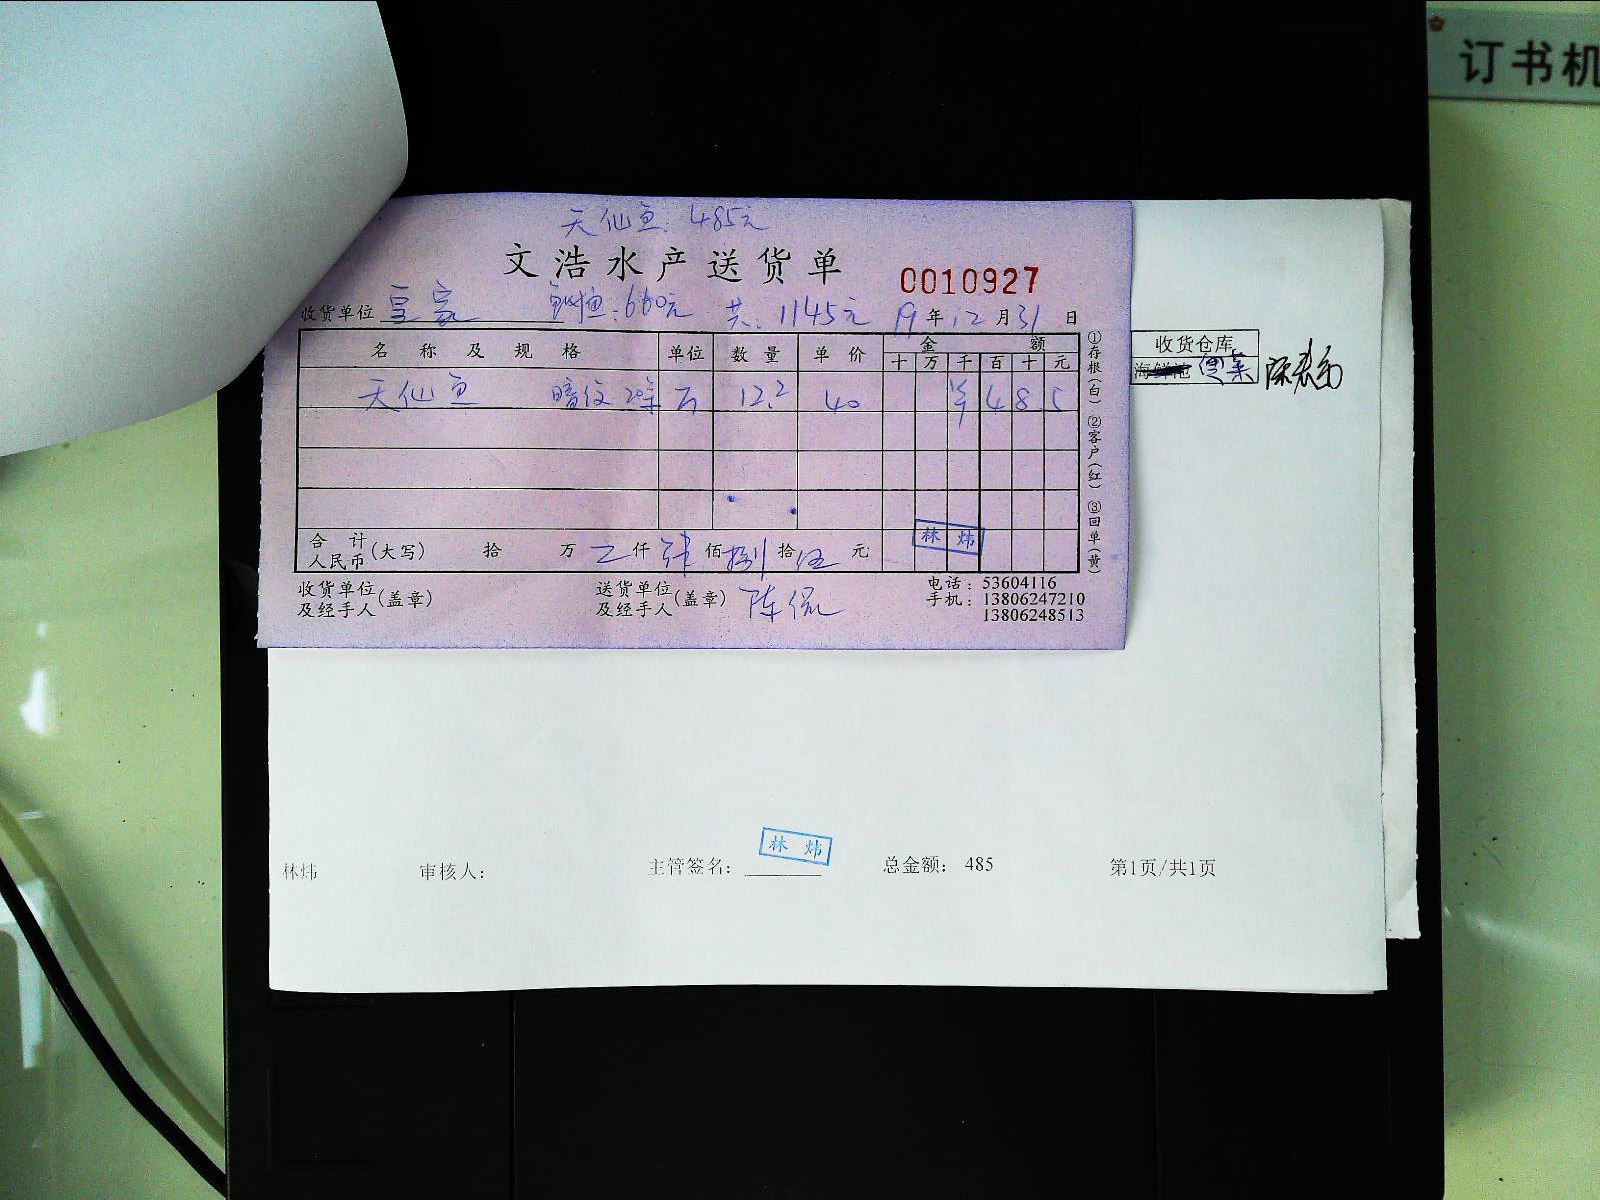 订书机
天仙鱼: 485元
文浩水产送货单
0010927
收货单位 皇家 660元 共: 1145元 19年12月31日
名称及规格 单位 数量 单价 金额
十 万 千 百 十 元
天仙鱼 暗纹 12.2 40 ¥ 4 8 5
合计人民币(大写) 拾 万 仟 肆佰捌拾伍元
林炜
收货单位及经手人(盖章) 送货单位及经手人(盖章) 陈
电话: 53604116
手机: 13806247210
13806248513
①存根(白) ②客户(红) ③回单(黄)
收货仓库
林炜
林炜 审核人: 主管签名: 总金额: 485 第1页/共1页